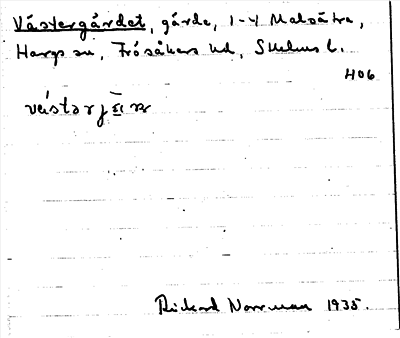 Västergärdet, gärde, 1-4 Malsätra,
Hargs sn, Frösåkers hd, Sthlms l.
H06
Rickard Norrman 1935.